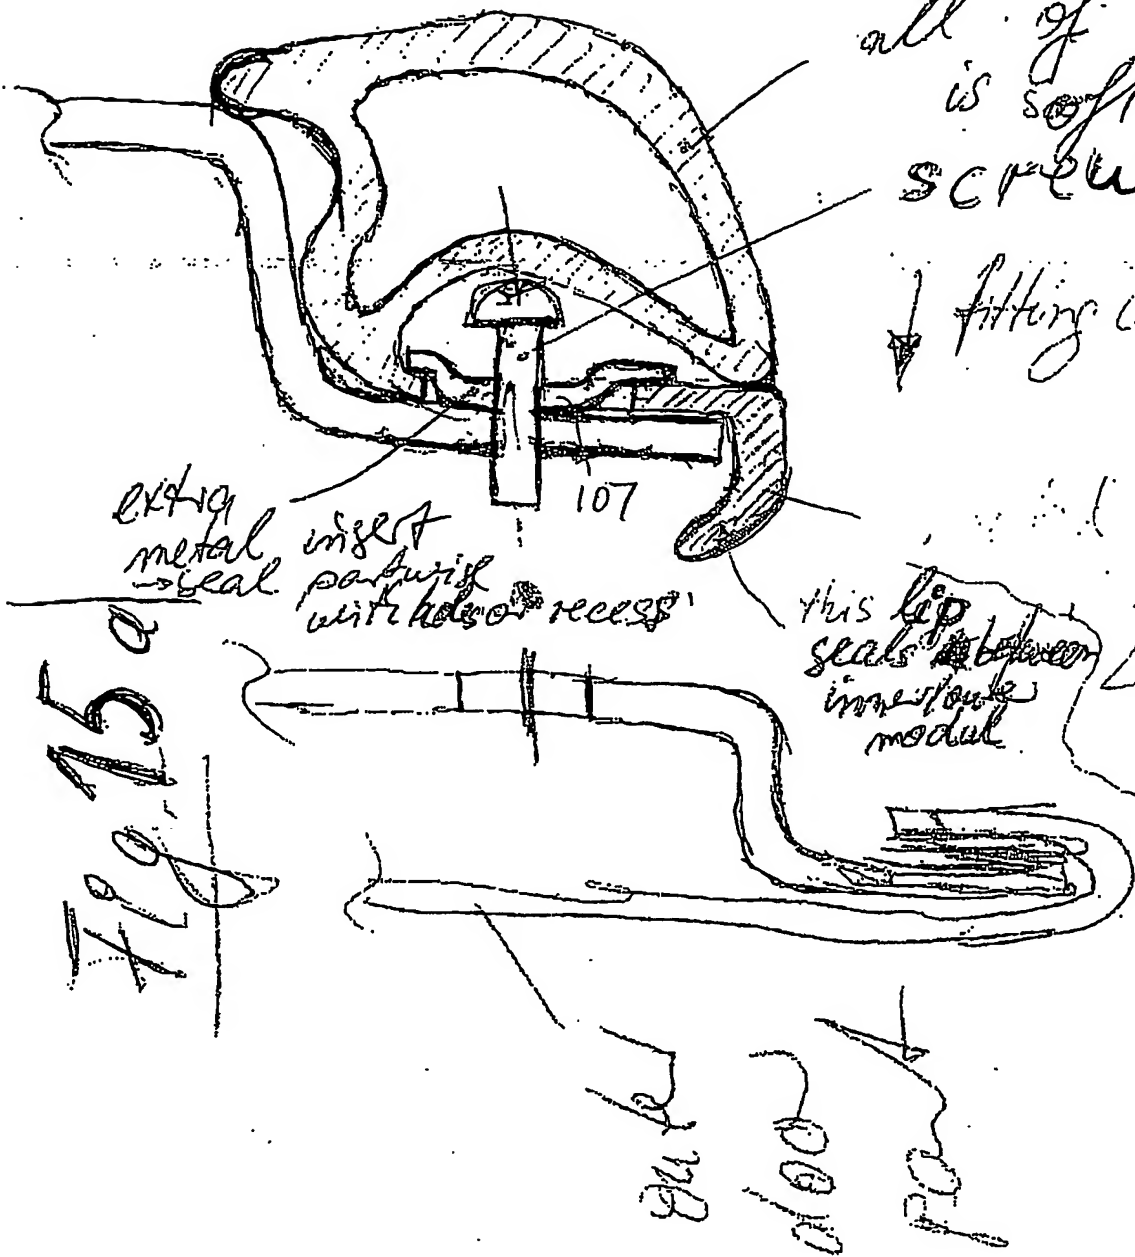 all of
is soft
screw
fitting
107
extra
metal insert
→ seal
with recess
this lip
seals between
inner/outer
modul
Fig. 15 a
door